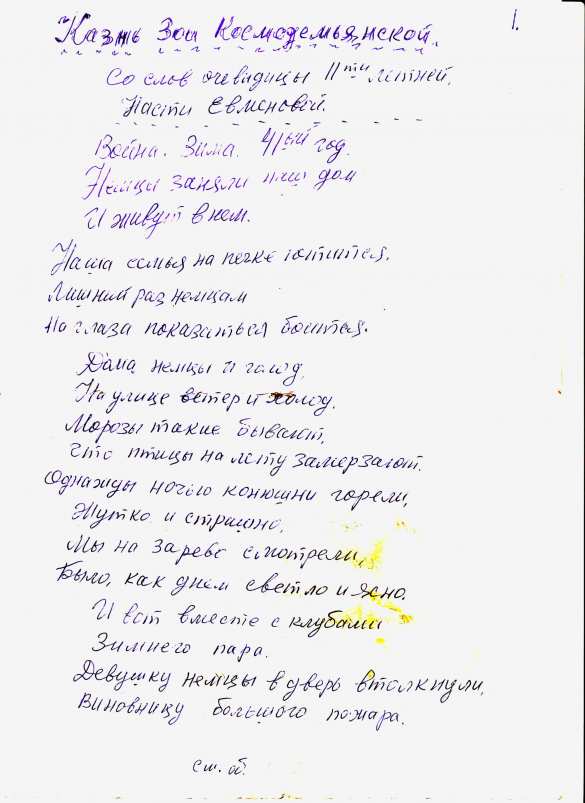 1.
Казнь Зои Космодемьянской.
Со слов очевидицы 11ти летней,
Насти Евменовой.
Война. Зима. 41ый год.
Немцы заняли наш дом
И живут в нем.
Наша семья на печке ютится.
Лишний раз немцам
На глаза показаться боится.
Дома немцы и голод,
На улице ветер и холод.
Морозы такие бывают,
Что птицы на лету замерзают.
Однажды ночью конюшни горели,
Жутко и страшно.
Мы на зарево смотрели,
Было, как днем светло и ясно.
И вот вместе с клубами
Зимнего пара.
Девушку немцы в дверь втолкнули,
Виновницу большого пожара.
см. об.